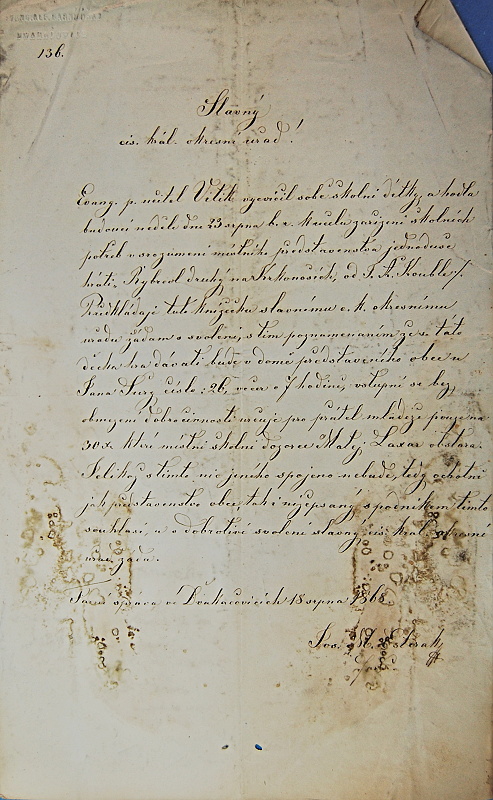 136.
Slavný
cís. král. okresní úřad!
Evang. p. učitel Vitik vycvičil sobě školní dětky, a hodlá
budoucí neděli dne 23 srpna b. r. k účelu zařízení školních
potřeb v srozumění místního představenstva jednoduše
hráti „Rybrcol druhý na Krkonoších, od J. A. Kouble".
Předkládaje tuto knížečku slavnému c. k. okresnímu
úřadu žádám o svolení, s tím poznamenaním, že se tato
dětská hra dávati bude v domě představeného obce u
Jana číslo: 26, večer o 7 hodině, vstupní se bez
obmezení dobročinnosti určuje pro přátel mládeže pouze na
30 x které místní školní dozorce Matěj Laxar obstará.
Jelikož s tímto nic jiného spojeno nebude, tedy ochotní
jak představenstvo obce, tak i nížepsaný spolčníkem tímto
souhlasí, a o dobrotivé svolení slavný cís. král. okresní
úřad žádá.
správa ve Dvakačovicích 18 srpna 1868.
Jos.